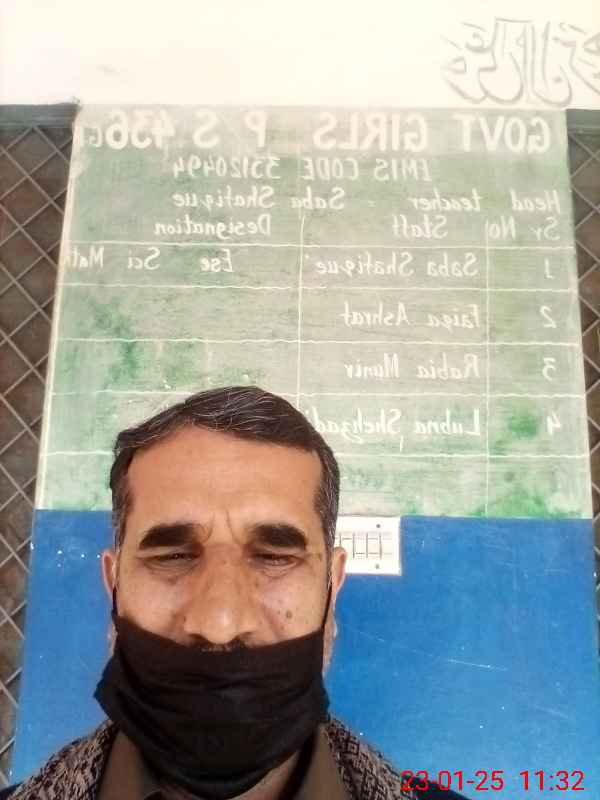 GOVT GIRLS P S 436G
EMIS CODE 33120494
Head teacher Saba Shafique
Sr No Staff Designation
1 Saba Shafique Ese Sci Math
2 Faiqa Ashraf
3 Rabia Munir
4 Lubna Shehzadi
23-01-25 11:32